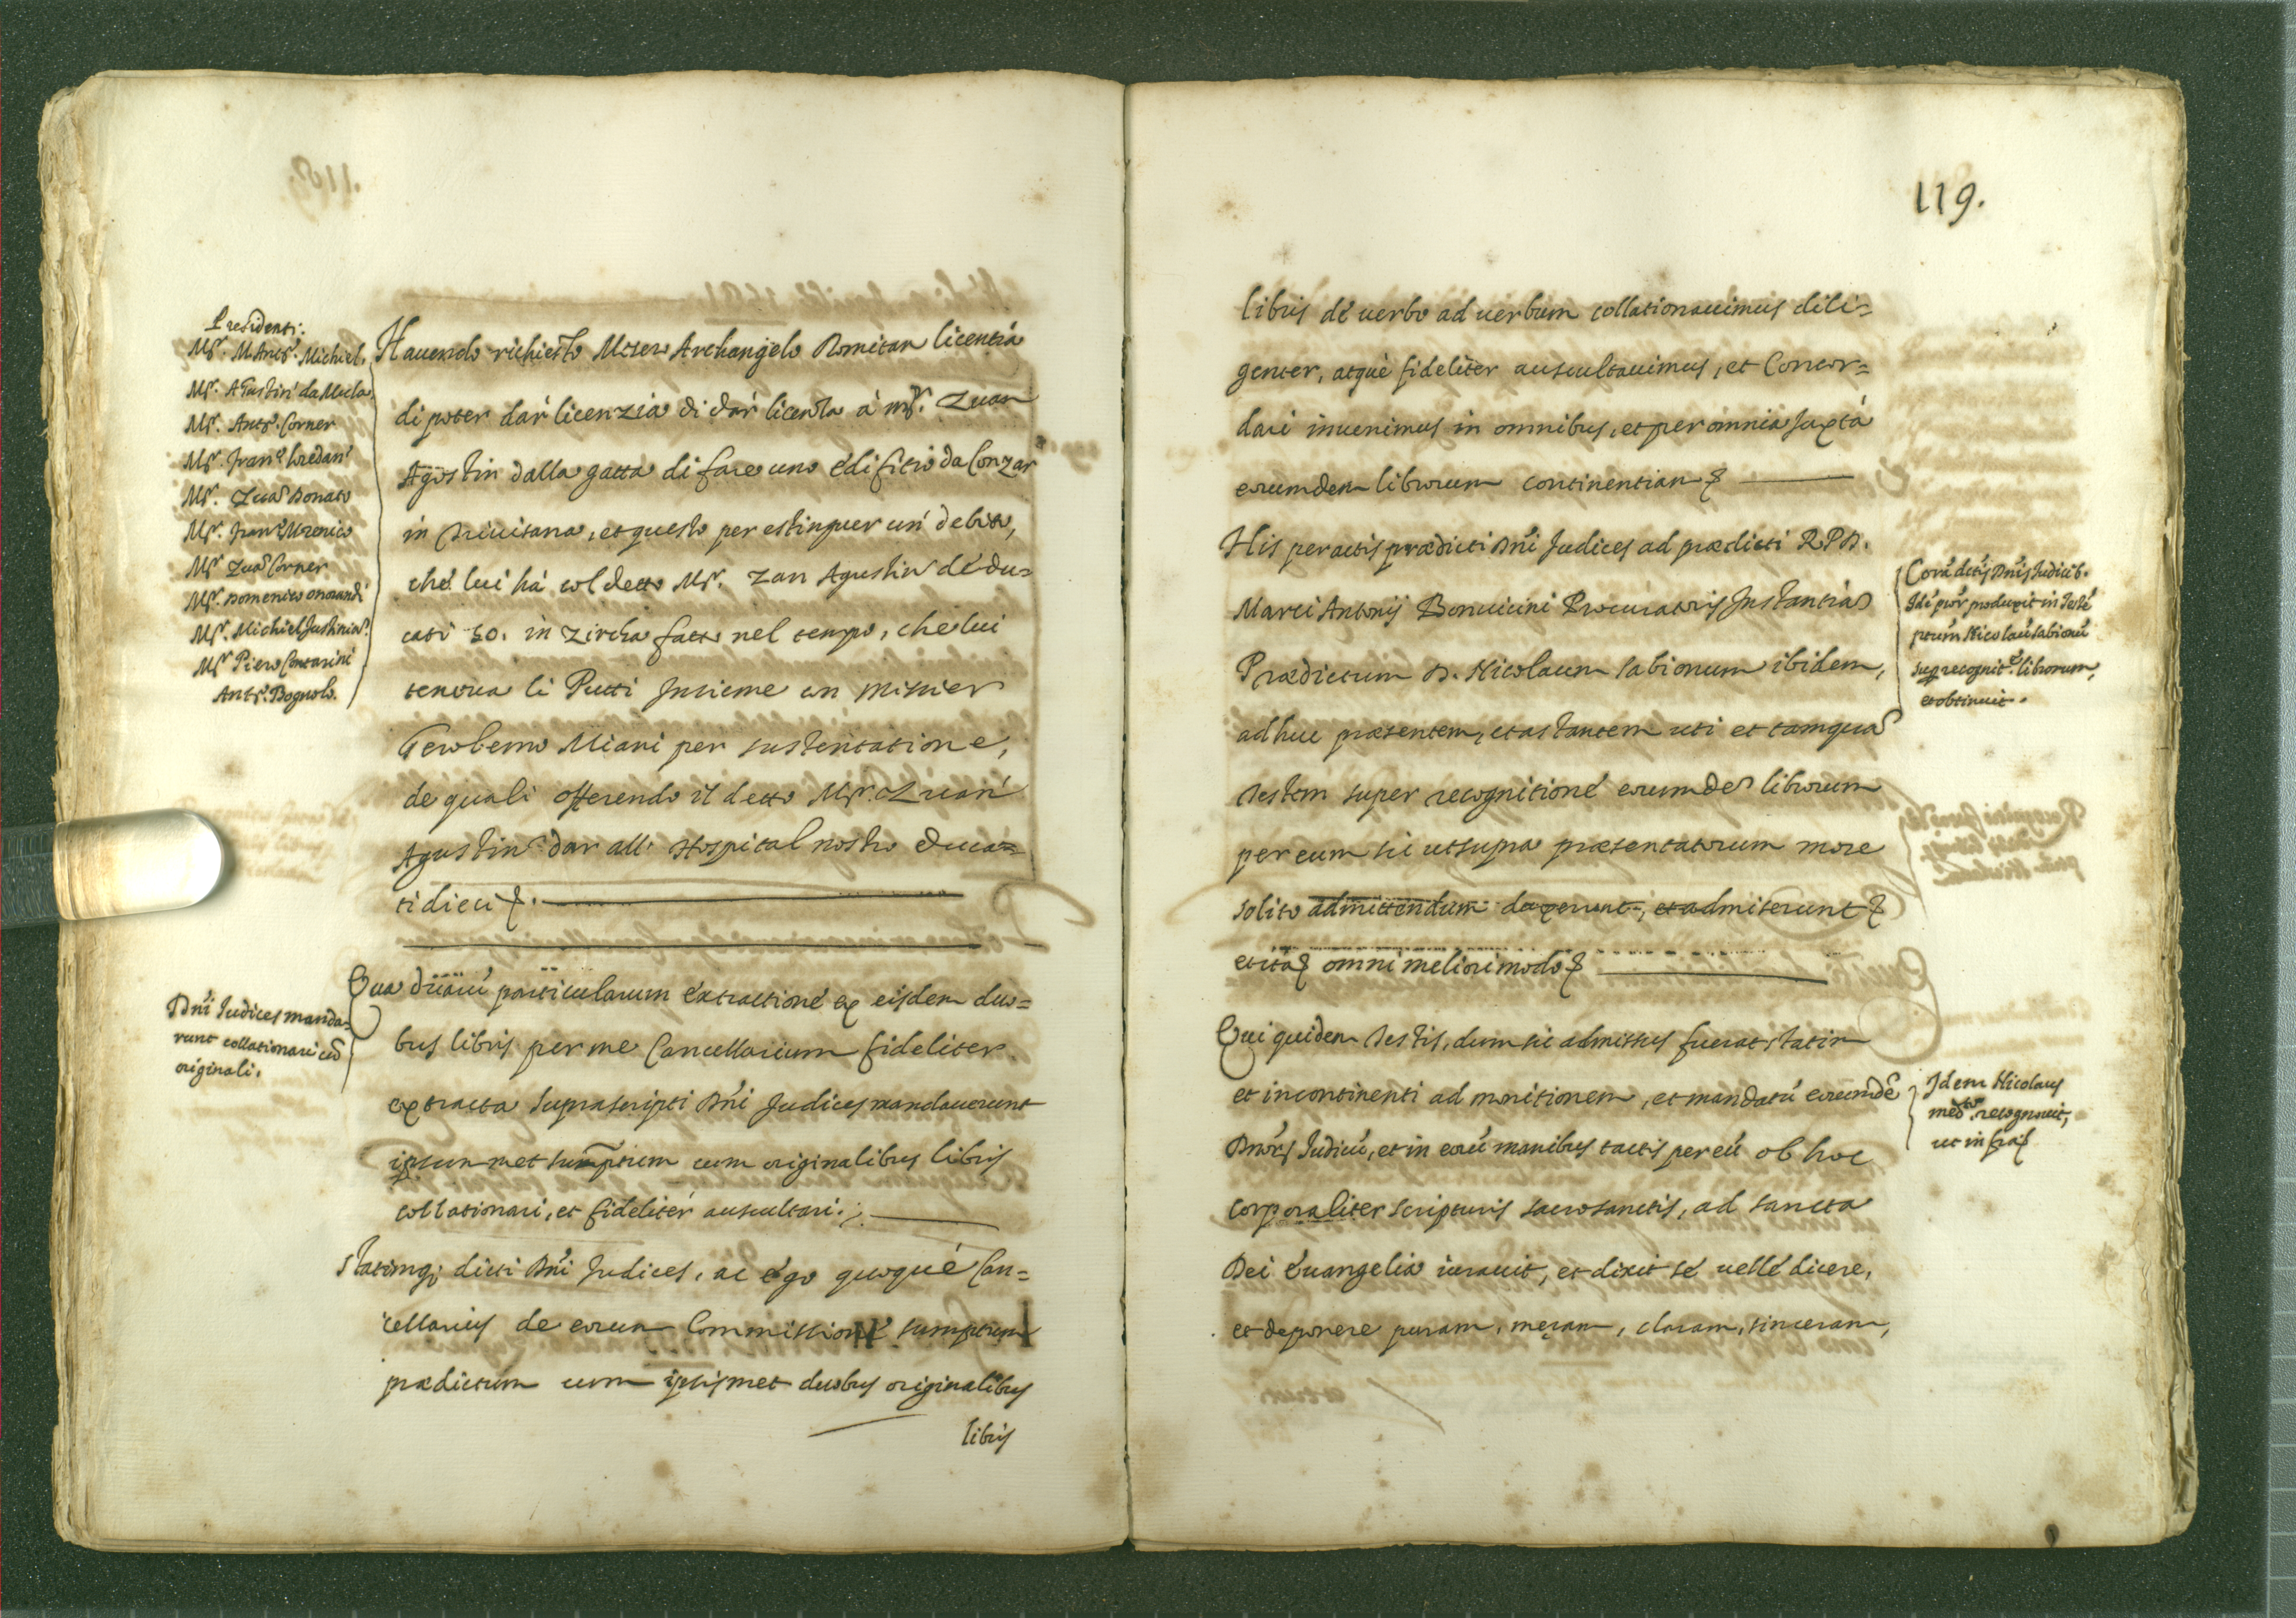 Presidenti.
Mr. M. Anto. Michiel.
Mr. Agustin da Mula.
Mr. Anto. Corner
Mr. Franco Loredan
Mr. Zuan Donato
Mr. Franco
Mr. Zuan Corner
Mr. Domenico Morandi
Mr. Michiel Justinian.
Mr. Piero Contarini
Anto. Bognolo.
Havendo richiesto Messer Archangelo Romitan licentia
di poter dar licenzia di dar licentia à mr. Zuan
Agostin dalla gatta di fare uno edifitio da Conzar
in Trivisana, et questo per estinguer un debito,
chè lui hà col detto Mr. Zan Agustin dè du=
cati 50. in zircha fatto nel tempo, che lui
teneva li Putti Insieme con missier
Gerolemo Miani per sustentatione,
de quali offerendo il detto Mr. Zuan
Agustin dar all' Hospital nostro duca=
ti dieci &.
Dni Judices manda=
runt collationari cu
originali.
Qua duaru particularum extractione ex eisdem duo=
bus libris per me Cancellarium fideliter
extracta suprascripti Dni Judices mandaverunt
ipsummet sumptum cum originalibus libris
collationari, et fideliter auscultari.
Statimq; dicti Dni Judices, ac ego quoquè Can=
cellarius de eorum Commissione sumptum
prædictum cum ipsismet duobus originalibus
libris
119.
libris de verbo ad verbum collationavimus dili=
genter, atquè fideliter auscultavimus, et Concor=
dari invenimus in omnibus, et per omnia Juxtà
eorumdem librorum continentiam &
His peractis prædicti Dni Judices ad prædicti R. P. D.
Marci Antonij Bonvicini Procuratoris Instantia
Prædictum D. Nicolaum Sabionum ibidem,
adhuc præsentem, et astantem uti et tamqua
Testem super recognitione eorumde librorum
per eum sic ut supra præsentatorum more
solito admittendum duxerunt, et admiserunt &
et ita & omni meliori modo &
Corà dctis Dnis Judicib.
Ide pror produxit in Teste
ptum Nicolau Sabionu
sup recognite librorum,
et obtinuit.
Qui quidem Testis, dum sic admissus fuerat statim
et incontinenti ad monitionem, et mandatu eorumde
Dnors Judicu, et in eoru manibus tactis per eu ob hoc
corporaliter scripturis sacrosanctis, ad sancta
Dei Evangelia iuravit, et dixit se velle dicere,
et deponere puram, meram, claram, sinceram,
Idem Nicolaus
medto recognovit,
ut infra &